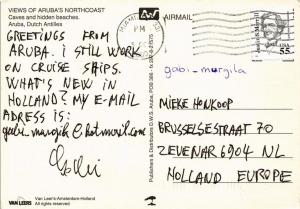 VIEWS OF ARUBA'S NORTHCOAST
Caves and hidden beaches.
Aruba, Dutch Antilles
GREETINGS FROM
ARUBA. I STILL WORK
ON CRUISE SHIPS.
WHAT'S NEW IN
HOLLAND? MY E-MAIL
ADRESS IS:
@hotmail.com
VAN LEERS
Van Leer's-Amsterdam-Holland
All rights reserved
Publishers & Distributors D.W.S. Aruba, POB 386
AIRMAIL
PM
USA
55
gabi_murgila
MIEKE HONKOOP
BRUSSELSESTRAAT 70
ZEVENAR 6904 NL
HOLLAND EUROPE